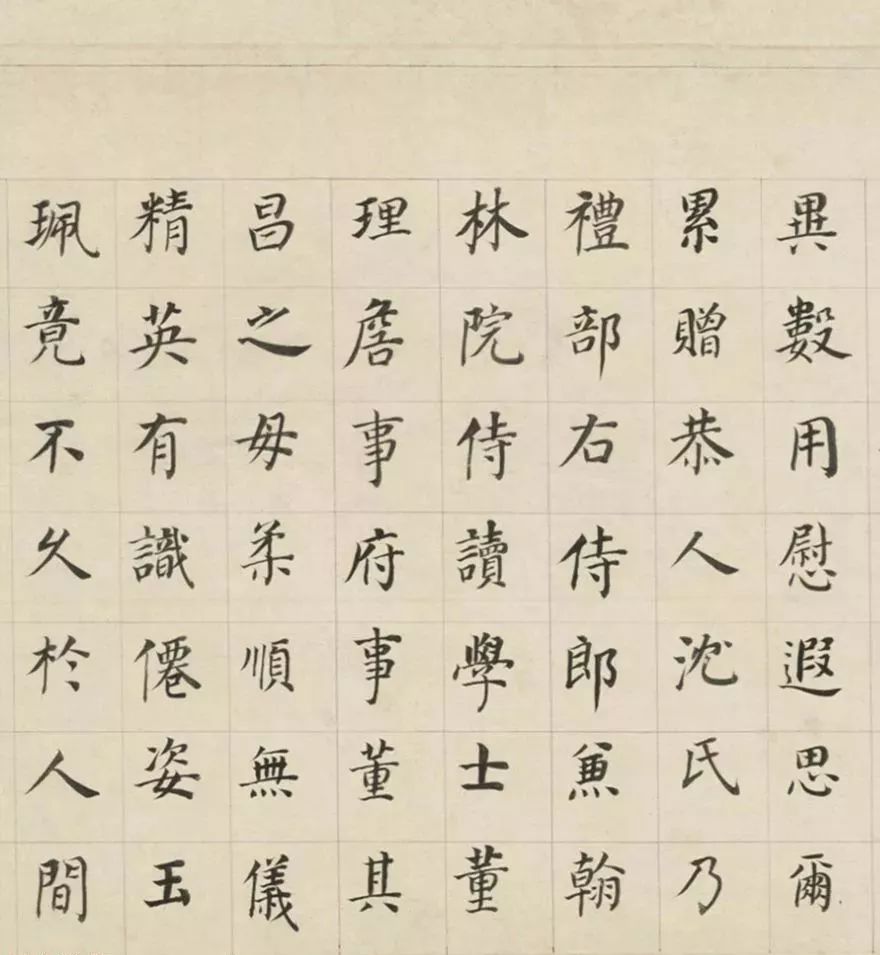 異數用慰遐思爾
累贈恭人沈氏乃
禮部右侍郎兼翰
林院侍讀學士董
理詹事府事董其
昌之母柔順無儀
精英有識僊姿玉
珮竟不久於人間